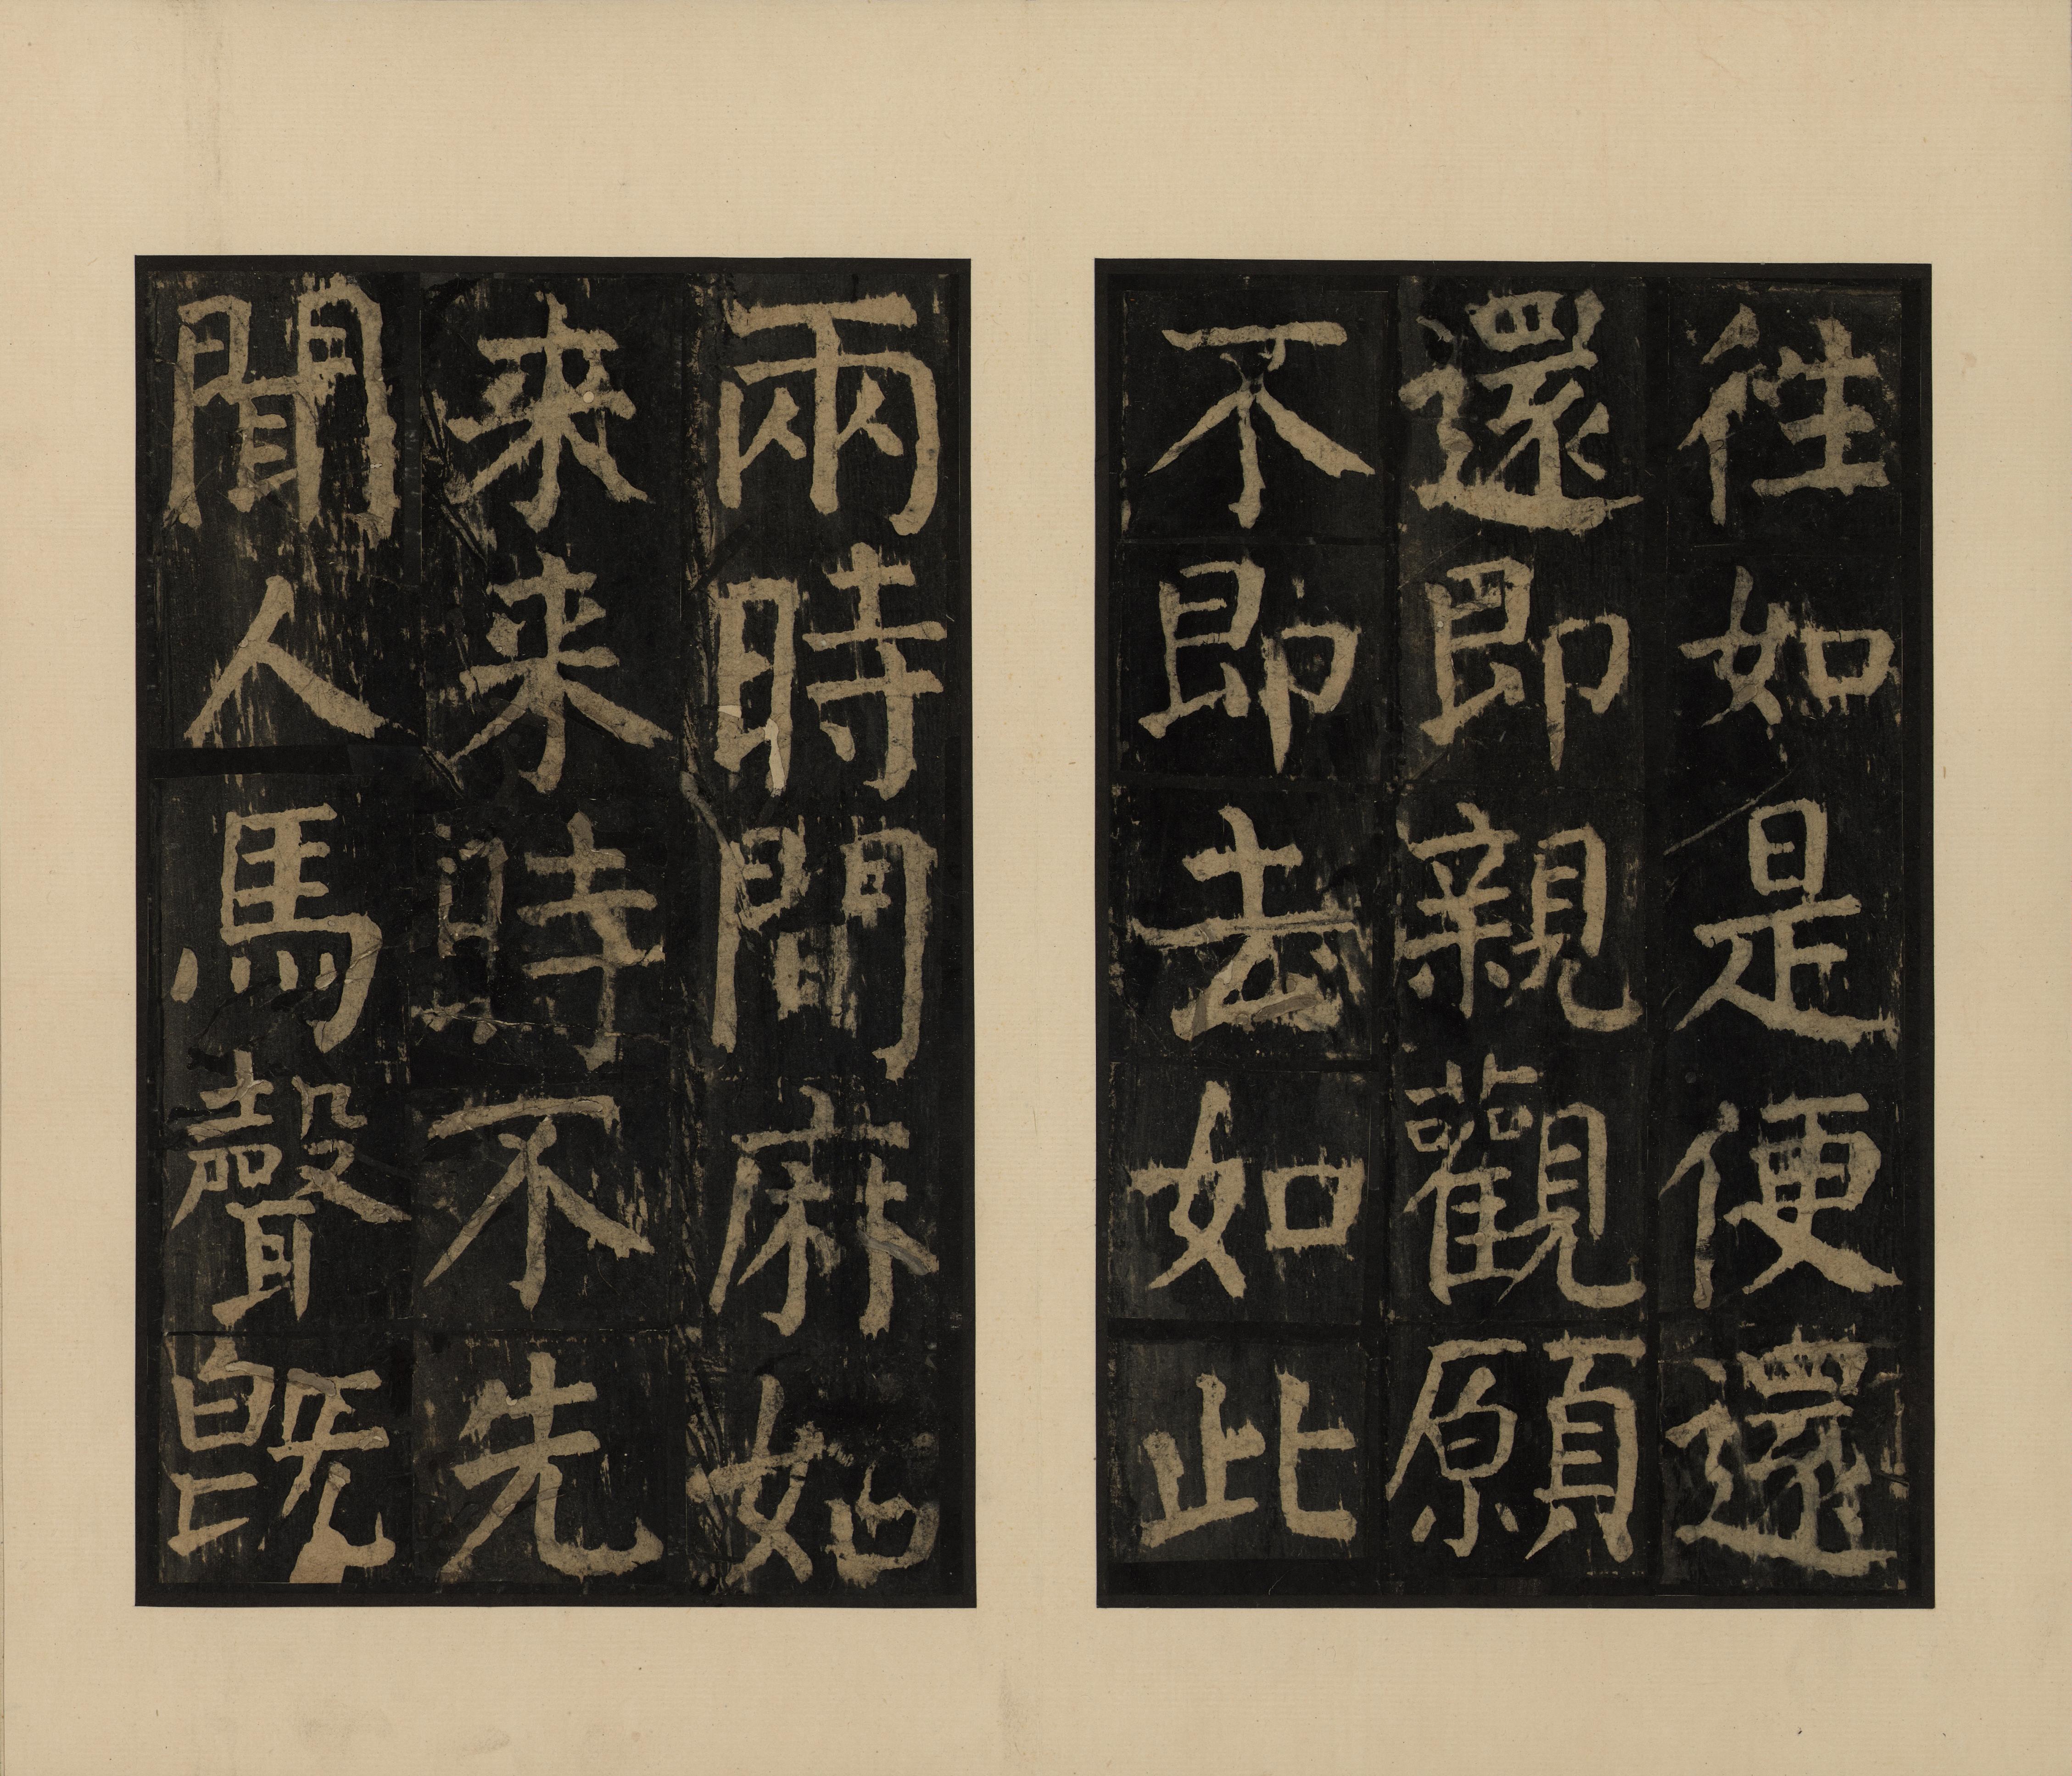 往如是便還
還即親觀願
不即去如此
兩時間麻姑
来来時不先
聞人馬聲既